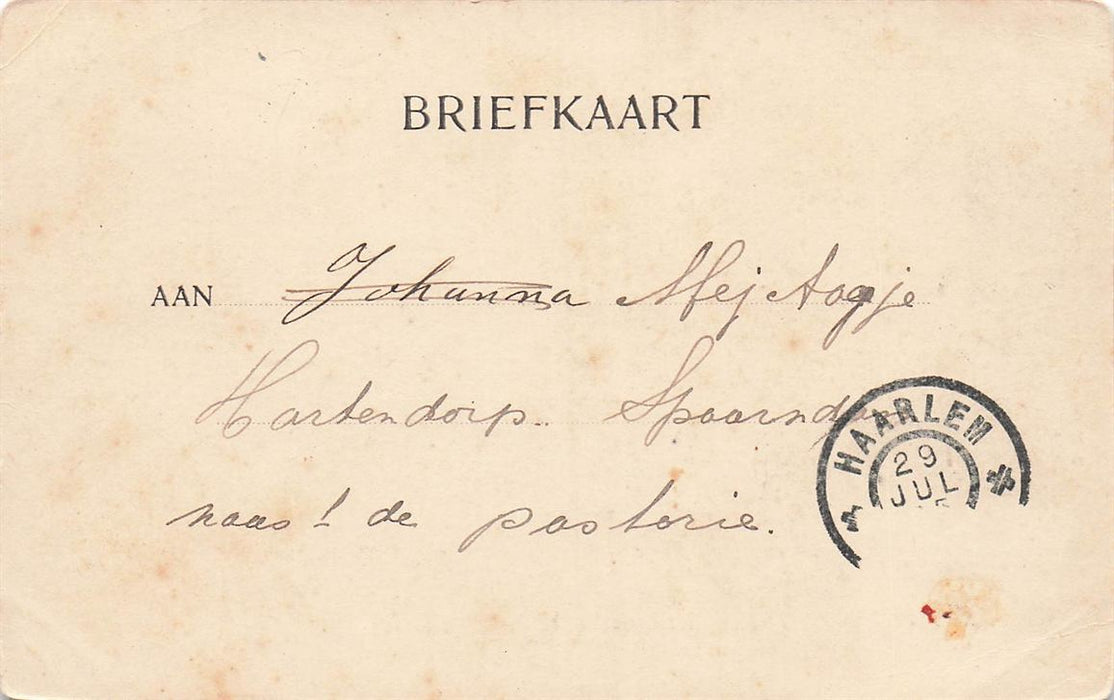 BRIEFKAART
AAN Johanna Mej Aagje
Hartendorp. Spaarnd
naast de pastorie.
HAARLEM
29
JUL